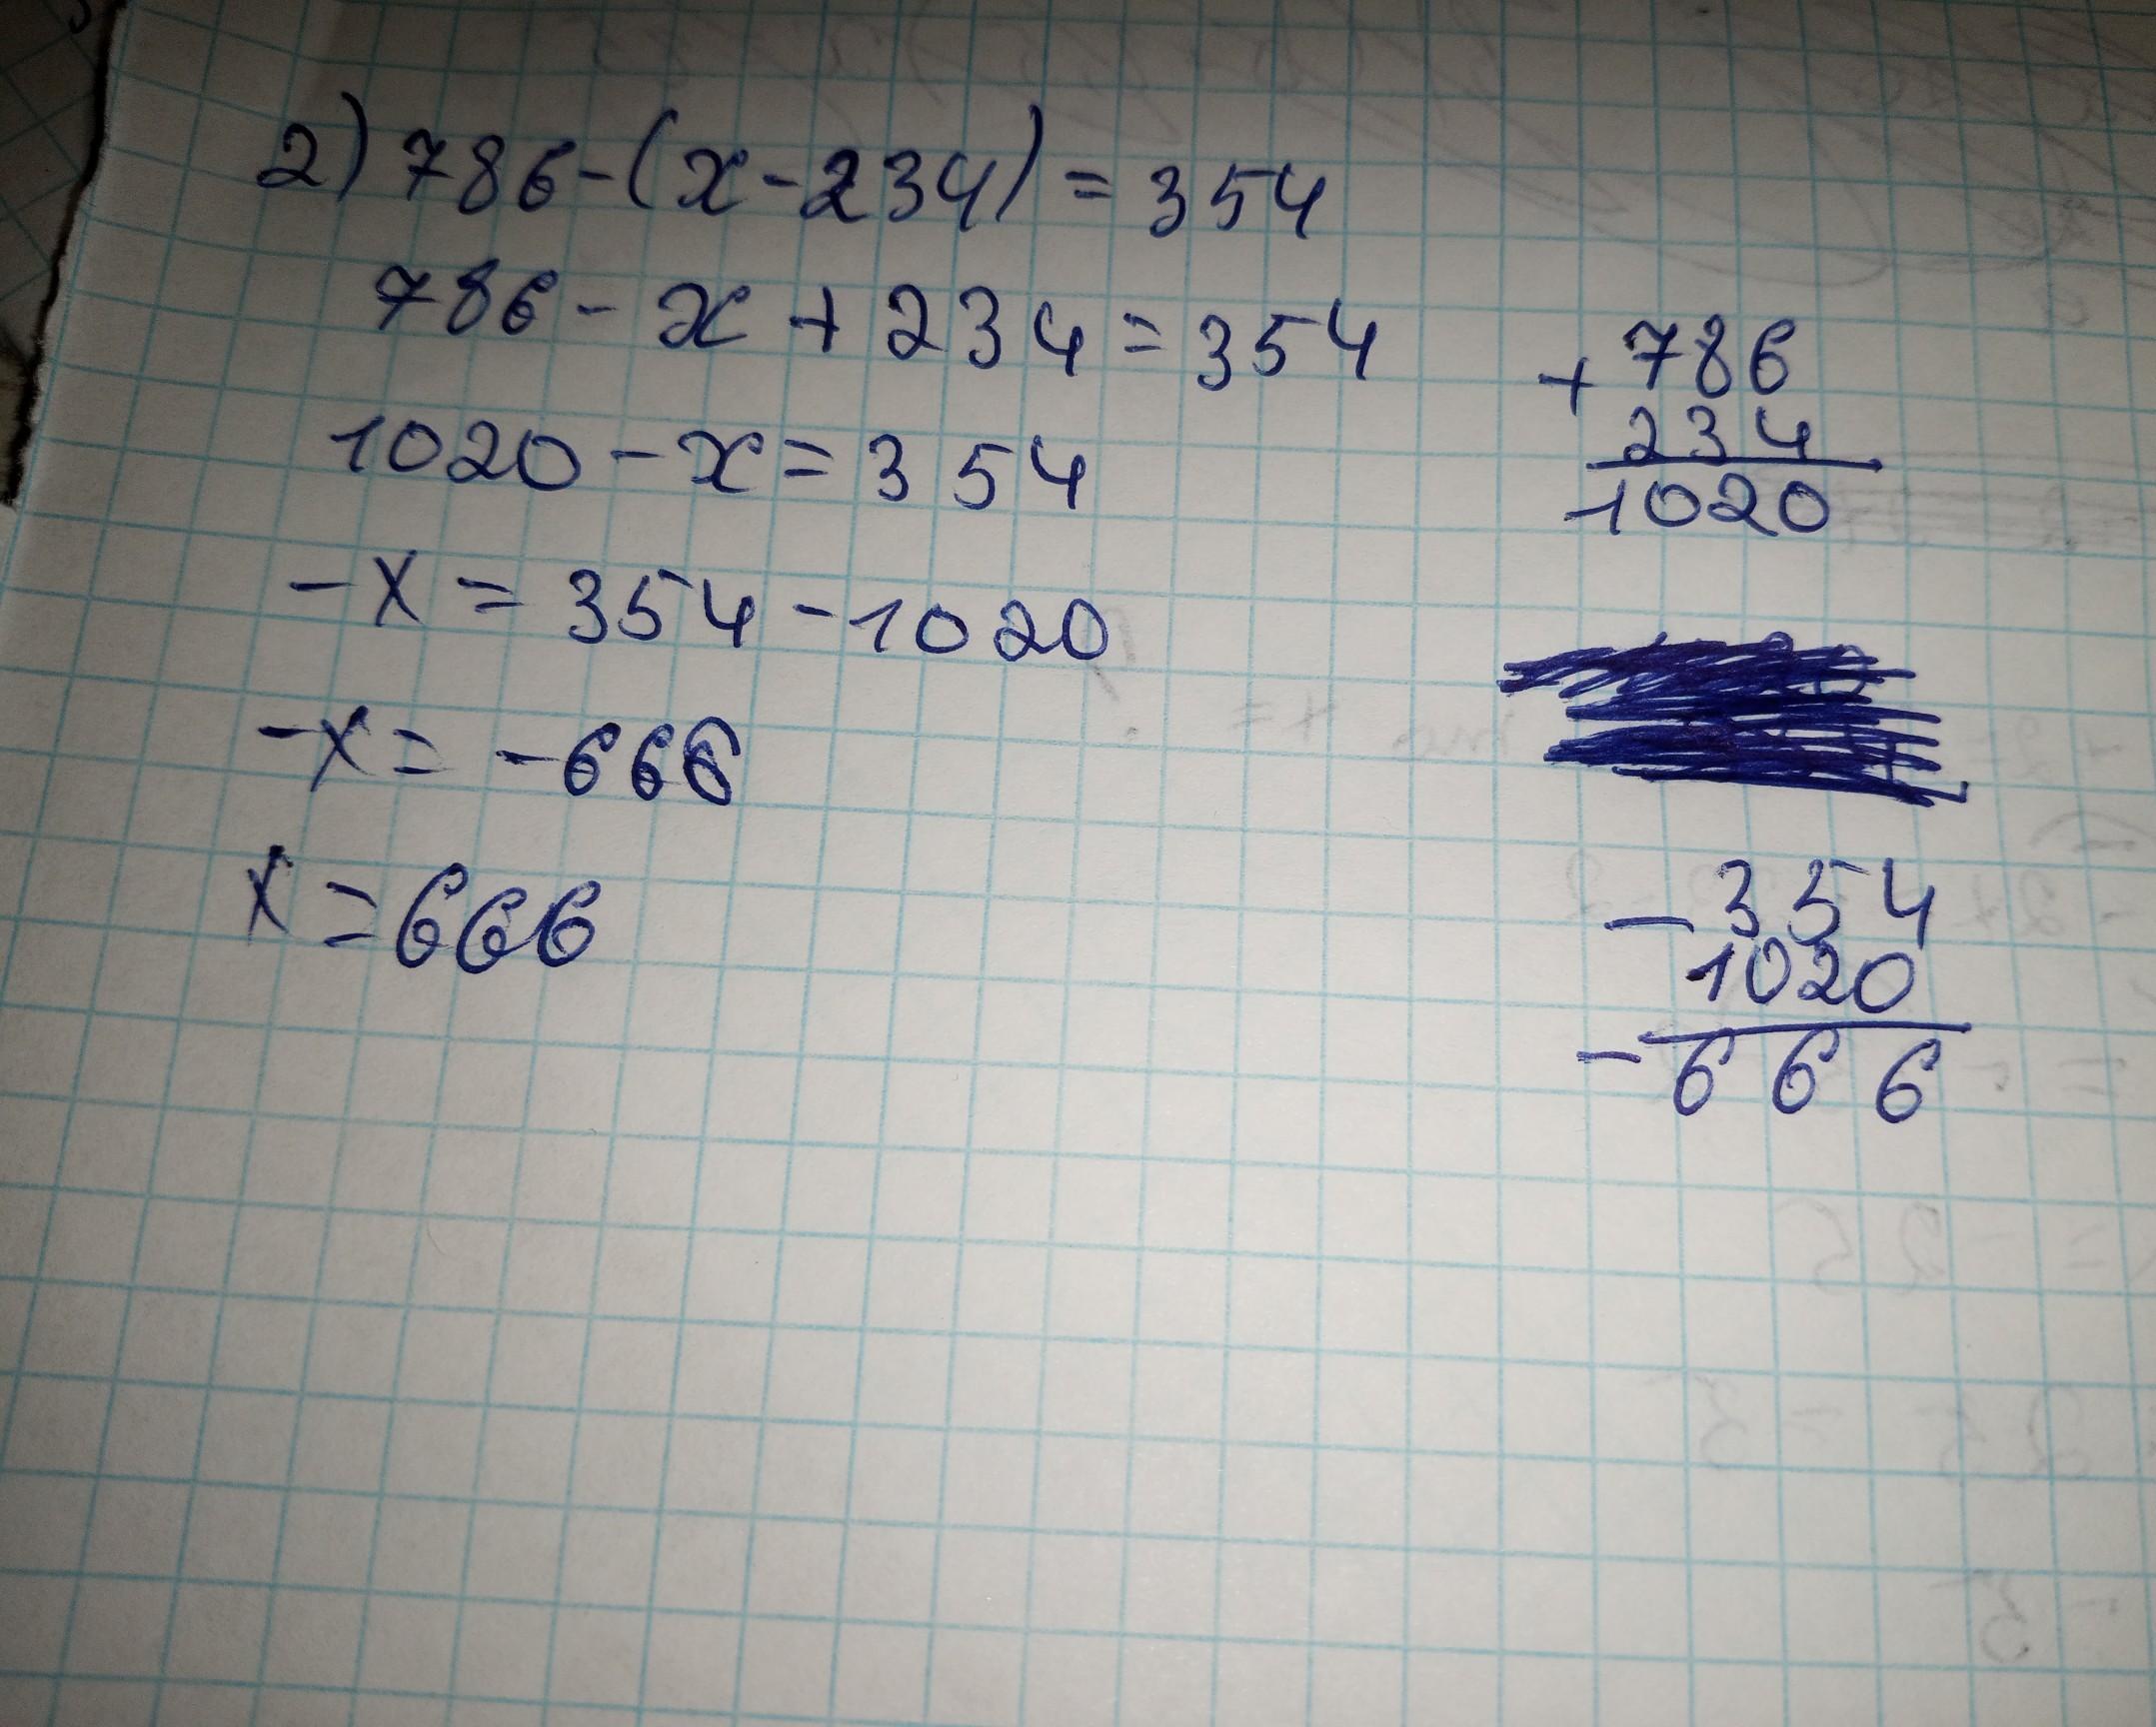 2) 786-(x-234)=354
786-x+234=354
1020-x=354
-x=354-1020
-x=-666
x=666
+786
234
1020
-354
1020
-666